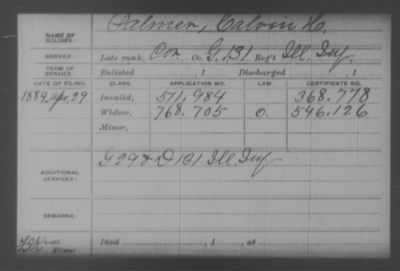 NAME OF SOLDIER: Palmer, Calvin H.
SERVICE: Late rank, Cor. Co. G, 131 Reg't Ill. Inf.
TERM OF SERVICE: Enlisted , 1 Discharged , 1
DATE OF FILING. CLASS. APPLICATION NO. LAW. CERTIFICATE NO.
1884, Apr. 29 Invalid, 511,984 368.778
Widow, 768.705 O. 546.126
Minor,
ADDITIONAL SERVICES: G 29 & D 131 Ill. Inf
REMARKS:
Died , 1 , at